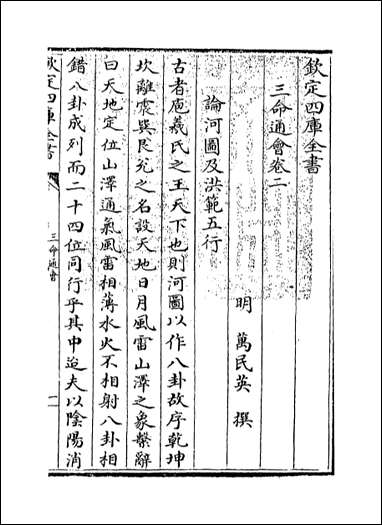 欽定四庫全書
三命通會卷二
明 萬民英 撰
論河圖及洪範五行
古者庖羲氏之王天下也則河圖以作八卦故序乾坤
坎離震巽艮兊之名設天地日月風雷山澤之象繫辭
曰天地定位山澤通氣風雷相薄水火不相射八卦相
錯八卦成列而二十四位同行乎其中迨夫以陰陽消
欽定四庫全書
三命通會
一